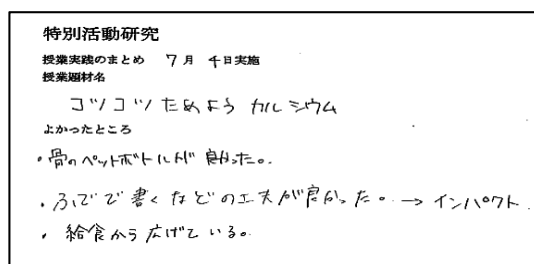 特別活動研究
授業実践のまとめ 7月 4日実施
授業題材名
コツコツためよう カルシウム
よかったところ
・骨のペットボトルが 良かった。
・ふでで書くなどの工夫が良かった。→ インパクト
・給食から広げている。